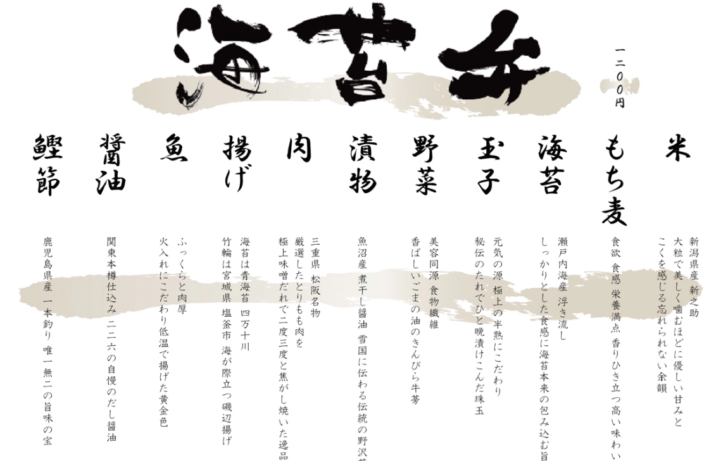 海苔弁
一二〇〇円
米
新潟県産 新之助
大粒で美しく歯むほどに優しい甘みと
こくを感じる忘れられない余韻
もち麦
食欲 食感 栄養満点 香りひき立つ高い味わい
海苔
瀬戸内海産 浮き流し
しっかりとした食感に海苔本来の包み込む旨
玉子
元気の源 極上の半熟にこだわり
秘伝のたれでひと晩漬けこんだ珠玉
野菜
美容同源 食物繊維
香ばしいごまの油のきんぴら牛蒡
漬物
魚沼産 煮干し醤油 雪国に伝わる伝統の野沢
肉
三重県 松阪名物
厳選したとりもも肉を
極上味噌だれで二度三度と焦がし焼いた逸品
揚げ
海苔は青海苔 四万十川
竹輪は宮城県 塩釜市 海が際立つ磯辺揚げ
魚
ふっくらと肉厚
火入れにこだわり低温で揚げた黄金色
醤油
関東本樽仕込み 二二六の自慢のだし醤油
鰹節
鹿児島県産 一本釣り 唯一無二の旨味の宝